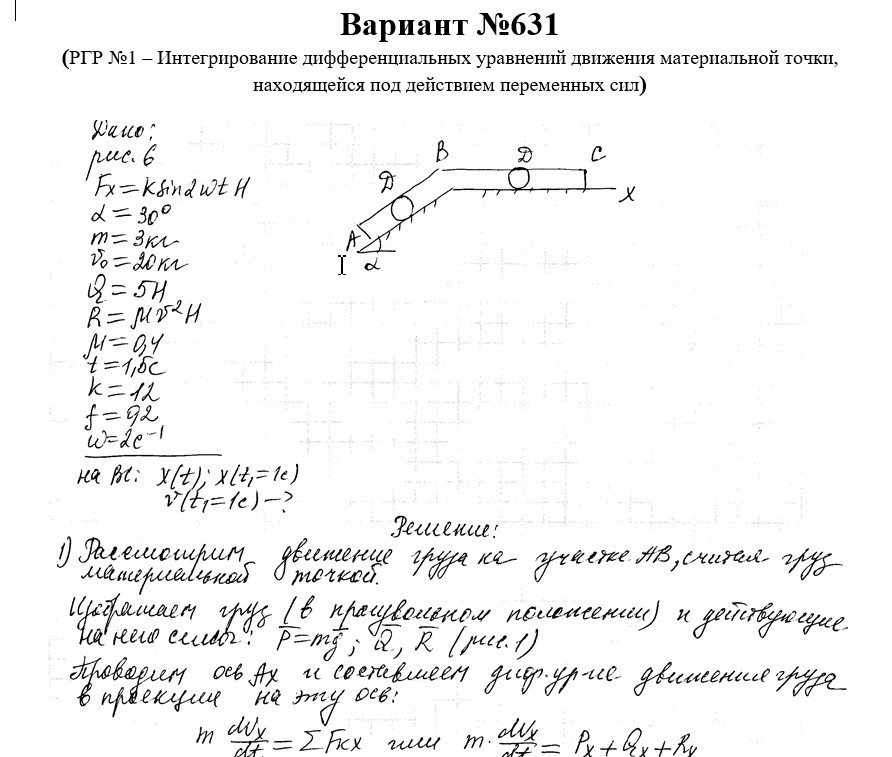 Вариант №631
(РГР №1 – Интегрирование дифференциальных уравнений движения материальной точки,
находящейся под действием переменных сил)
Дано:
рис. 6
Fx = k sin 2wt H
α = 30°
m = 3кг
v₀ = 20кг
Q = 5H
R = μv² H
μ = 0,4
t = 1,5c
k = 12
f = 0,2
w = 2c⁻¹
на BC: x(t); x(t₁=1c)
v(t₁=1c) – ?
A
D
B
D
C
x
α
Решение:
1) Рассмотрим движение груза на участке AB, считая груз
материальной точкой.
Изображаем груз (в произвольном положении) и действующие
на него силы: P̅=mg̅; Q̅, R̅ (рис. 1)
Проводим ось Ax и составляем диф. ур-ие движения груза
в проекции на эту ось:
m dVx/dt = ΣFкx или m · dVx/dt = Px + Qx + Rx